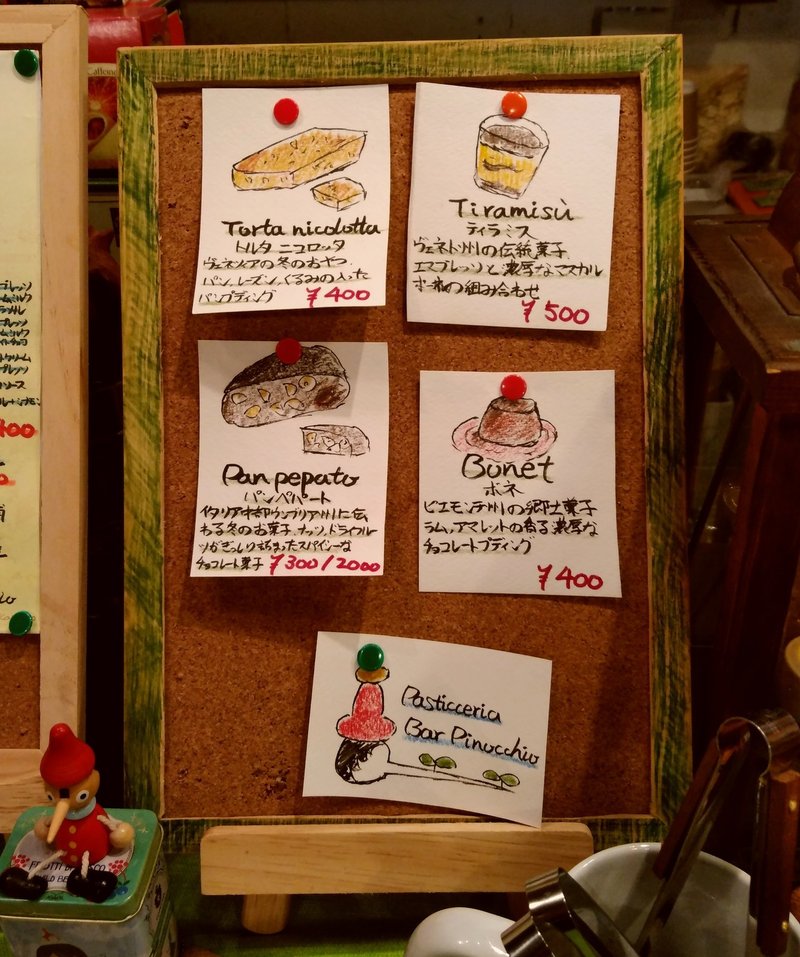 Torta nicolotta
トルタ ニコロッタ
ヴェネツィアの冬のおやつ
パン、レーズン、くるみの入った
パンプディング ¥400
Tiramisù
ティラミス
ヴェネト州の伝統菓子
エスプレッソと濃厚なマスカル
ポーネの組み合わせ
¥500
Pan pepato
パンペパート
イタリア中部ウンブリア州に伝
わる冬のお菓子、ナッツ、ドライフルー
ツがぎっしりつまったスパイシーな
チョコレート菓子 ¥300/2000
Bonet
ボネ
ピエモンテ州の郷土菓子
ラム、アマレットの香る濃厚な
チョコレートプディング
¥400
Pasticceria
Bar Pinocchio